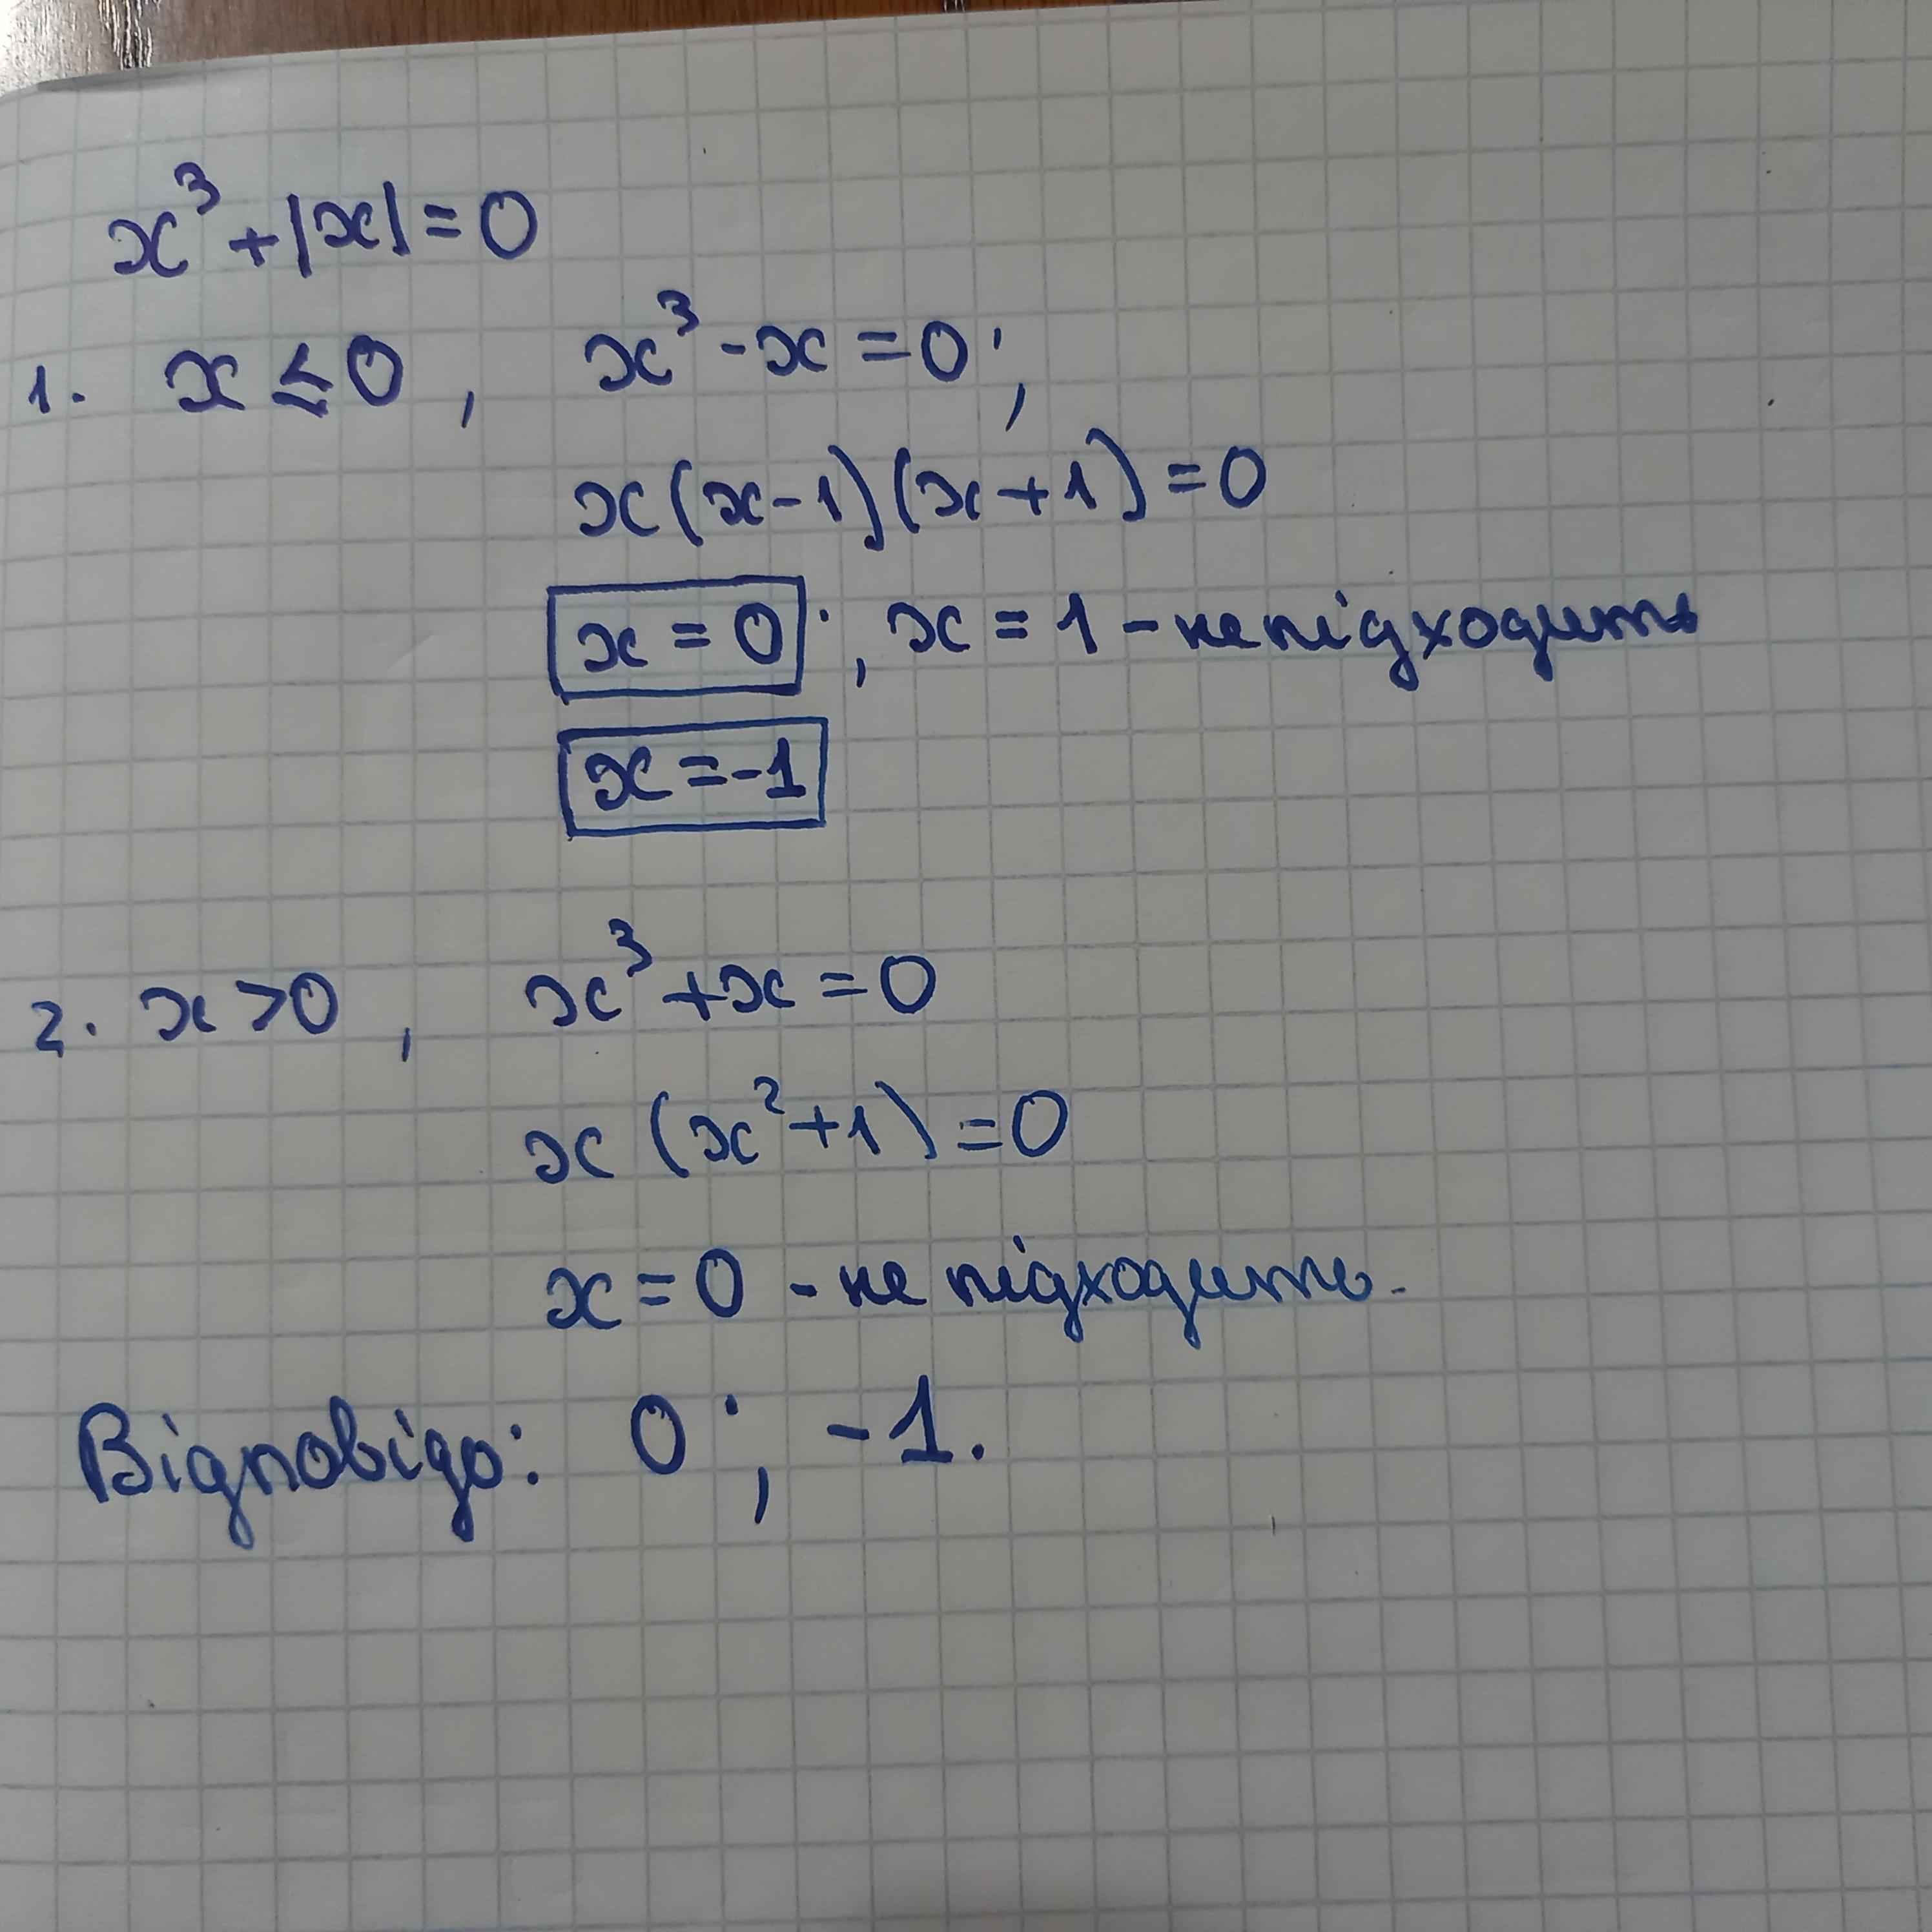 x³ + |x| = 0
1. x ≤ 0, x³ - x = 0;
x(x-1)(x+1) = 0
x = 0; x = 1 - не підходить
x = -1
2. x > 0, x³ + x = 0
x (x² + 1) = 0
x = 0 - не підходить.
Відповідь: 0; -1.